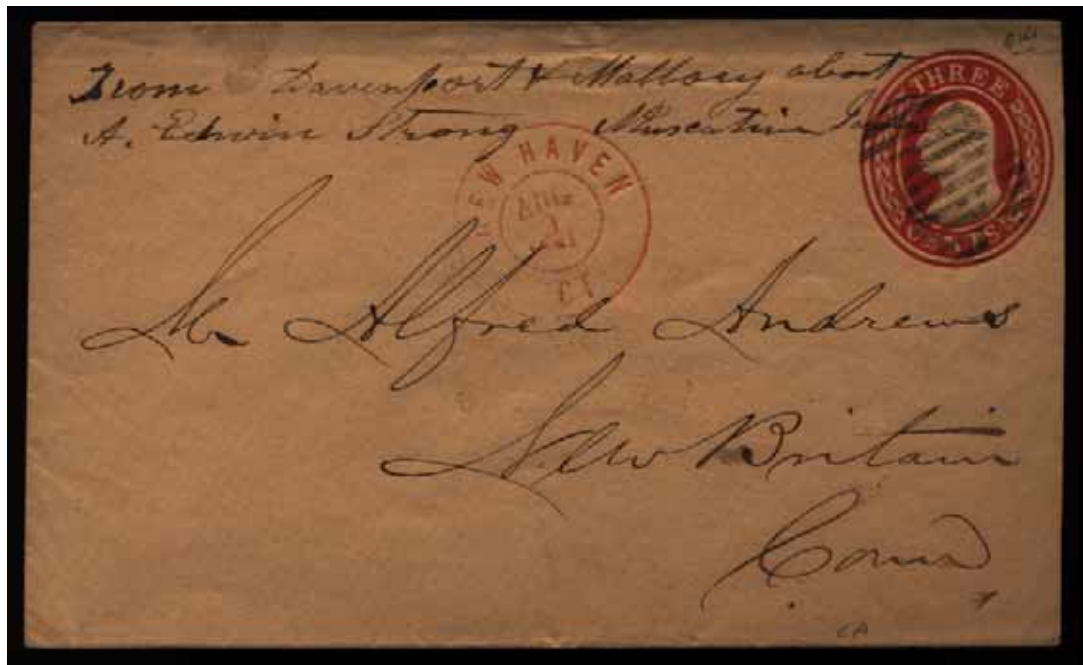 From Davenport & Mallory about
A. Edwin Strong Muscatine
THREE
CENTS
NEW HAVEN
CT
Mr Alfred Andrews
New Britain
Conn